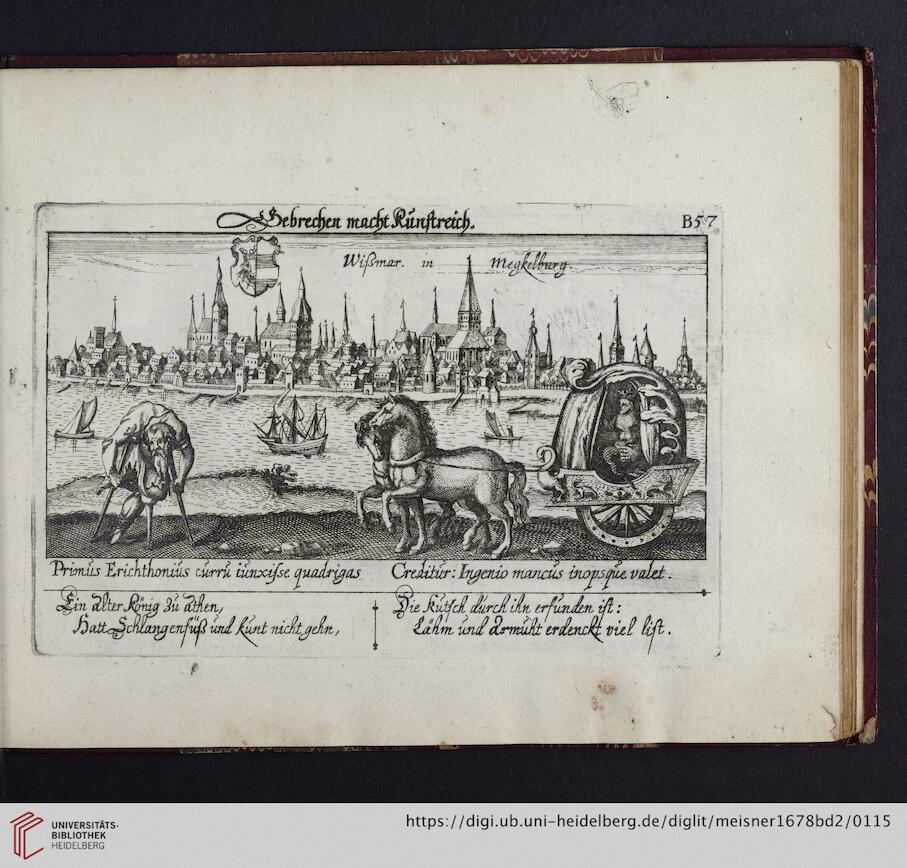 Gebrechen macht Kunstreich.
B57
Wißmar. in Megkelburg.
Primus Erichthonius currū iunxisse quadrigas
Creditur: Ingenio mancus inopsque valet.
Ein alter König zu athen,
Hatt Schlangenfüß und kunt nicht gehn,
Die kutsch durch ihn erfunden ist:
Lähm und armuht erdenckt viel list.
UNIVERSITÄTS-
BIBLIOTHEK
HEIDELBERG
https://digi.ub.uni-heidelberg.de/diglit/meisner1678bd2/0115